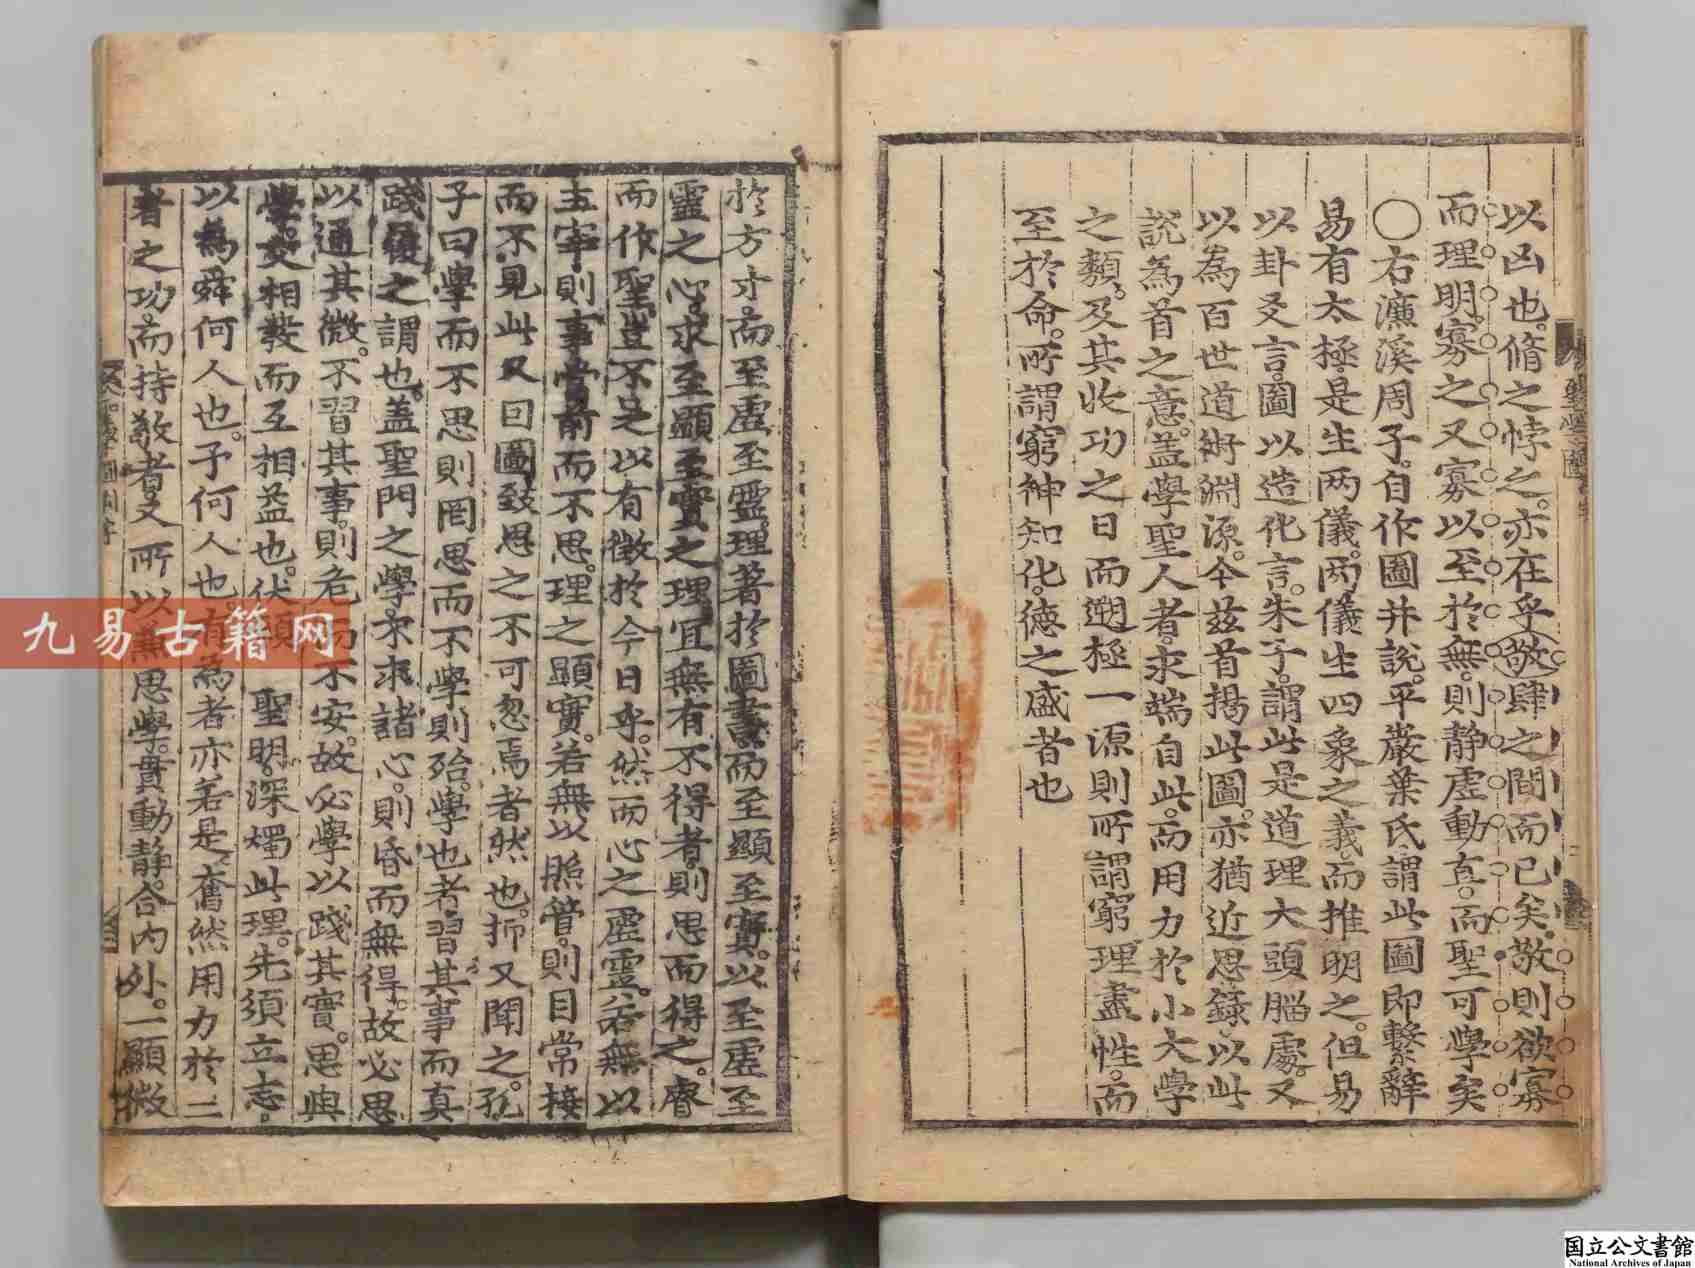 以凶也脩之悖之亦在乎敬肆之間而已矣敬則欲寡
而理明寡之又寡以至於無則静虛動直而聖可學矣
○右濂溪周子自作圖并說平巖葉氏謂此圖即繫辭
易有太極是生兩儀兩儀生四象之義而推明之但易
以卦爻言圖以造化言朱子謂此是道理大頭腦處又
以為百世道術淵源今茲首揭此圖亦猶近思錄以此
說為首之意盖學聖人者求端自此而用力於小大學
之類及其收功之日而遡極一源則所謂窮理盡性而
至於命所謂窮神知化德之盛者也
於方寸而至虛至靈理著於圖書而至顯至實以至虛至
靈之心求至顯至實之理宜無有不得者則思而得之睿
而作聖豈不足以有徵於今日乎然而心之虛靈若無以
主宰則事當前而不思理之顯實若無以照管則目常接
而不見此又因圖致思之不可忽焉者然也抑又聞之孔
子曰學而不思則罔思而不學則殆學也者習其事而真
踐履之謂也盖聖門之學不求諸心則昏而無得故必思
以通其微不習其事則危而不安故必學以踐其實思與
學交相發而互相益也伏願 聖明深燭此理先須立志
以為舜何人也予何人也有為者亦若是奮然用力於二
者之功而持敬者又所以兼思學貫動静合内外一顯微
聖學十圖
九易古籍网
国立公文書館
National Archives of Japan